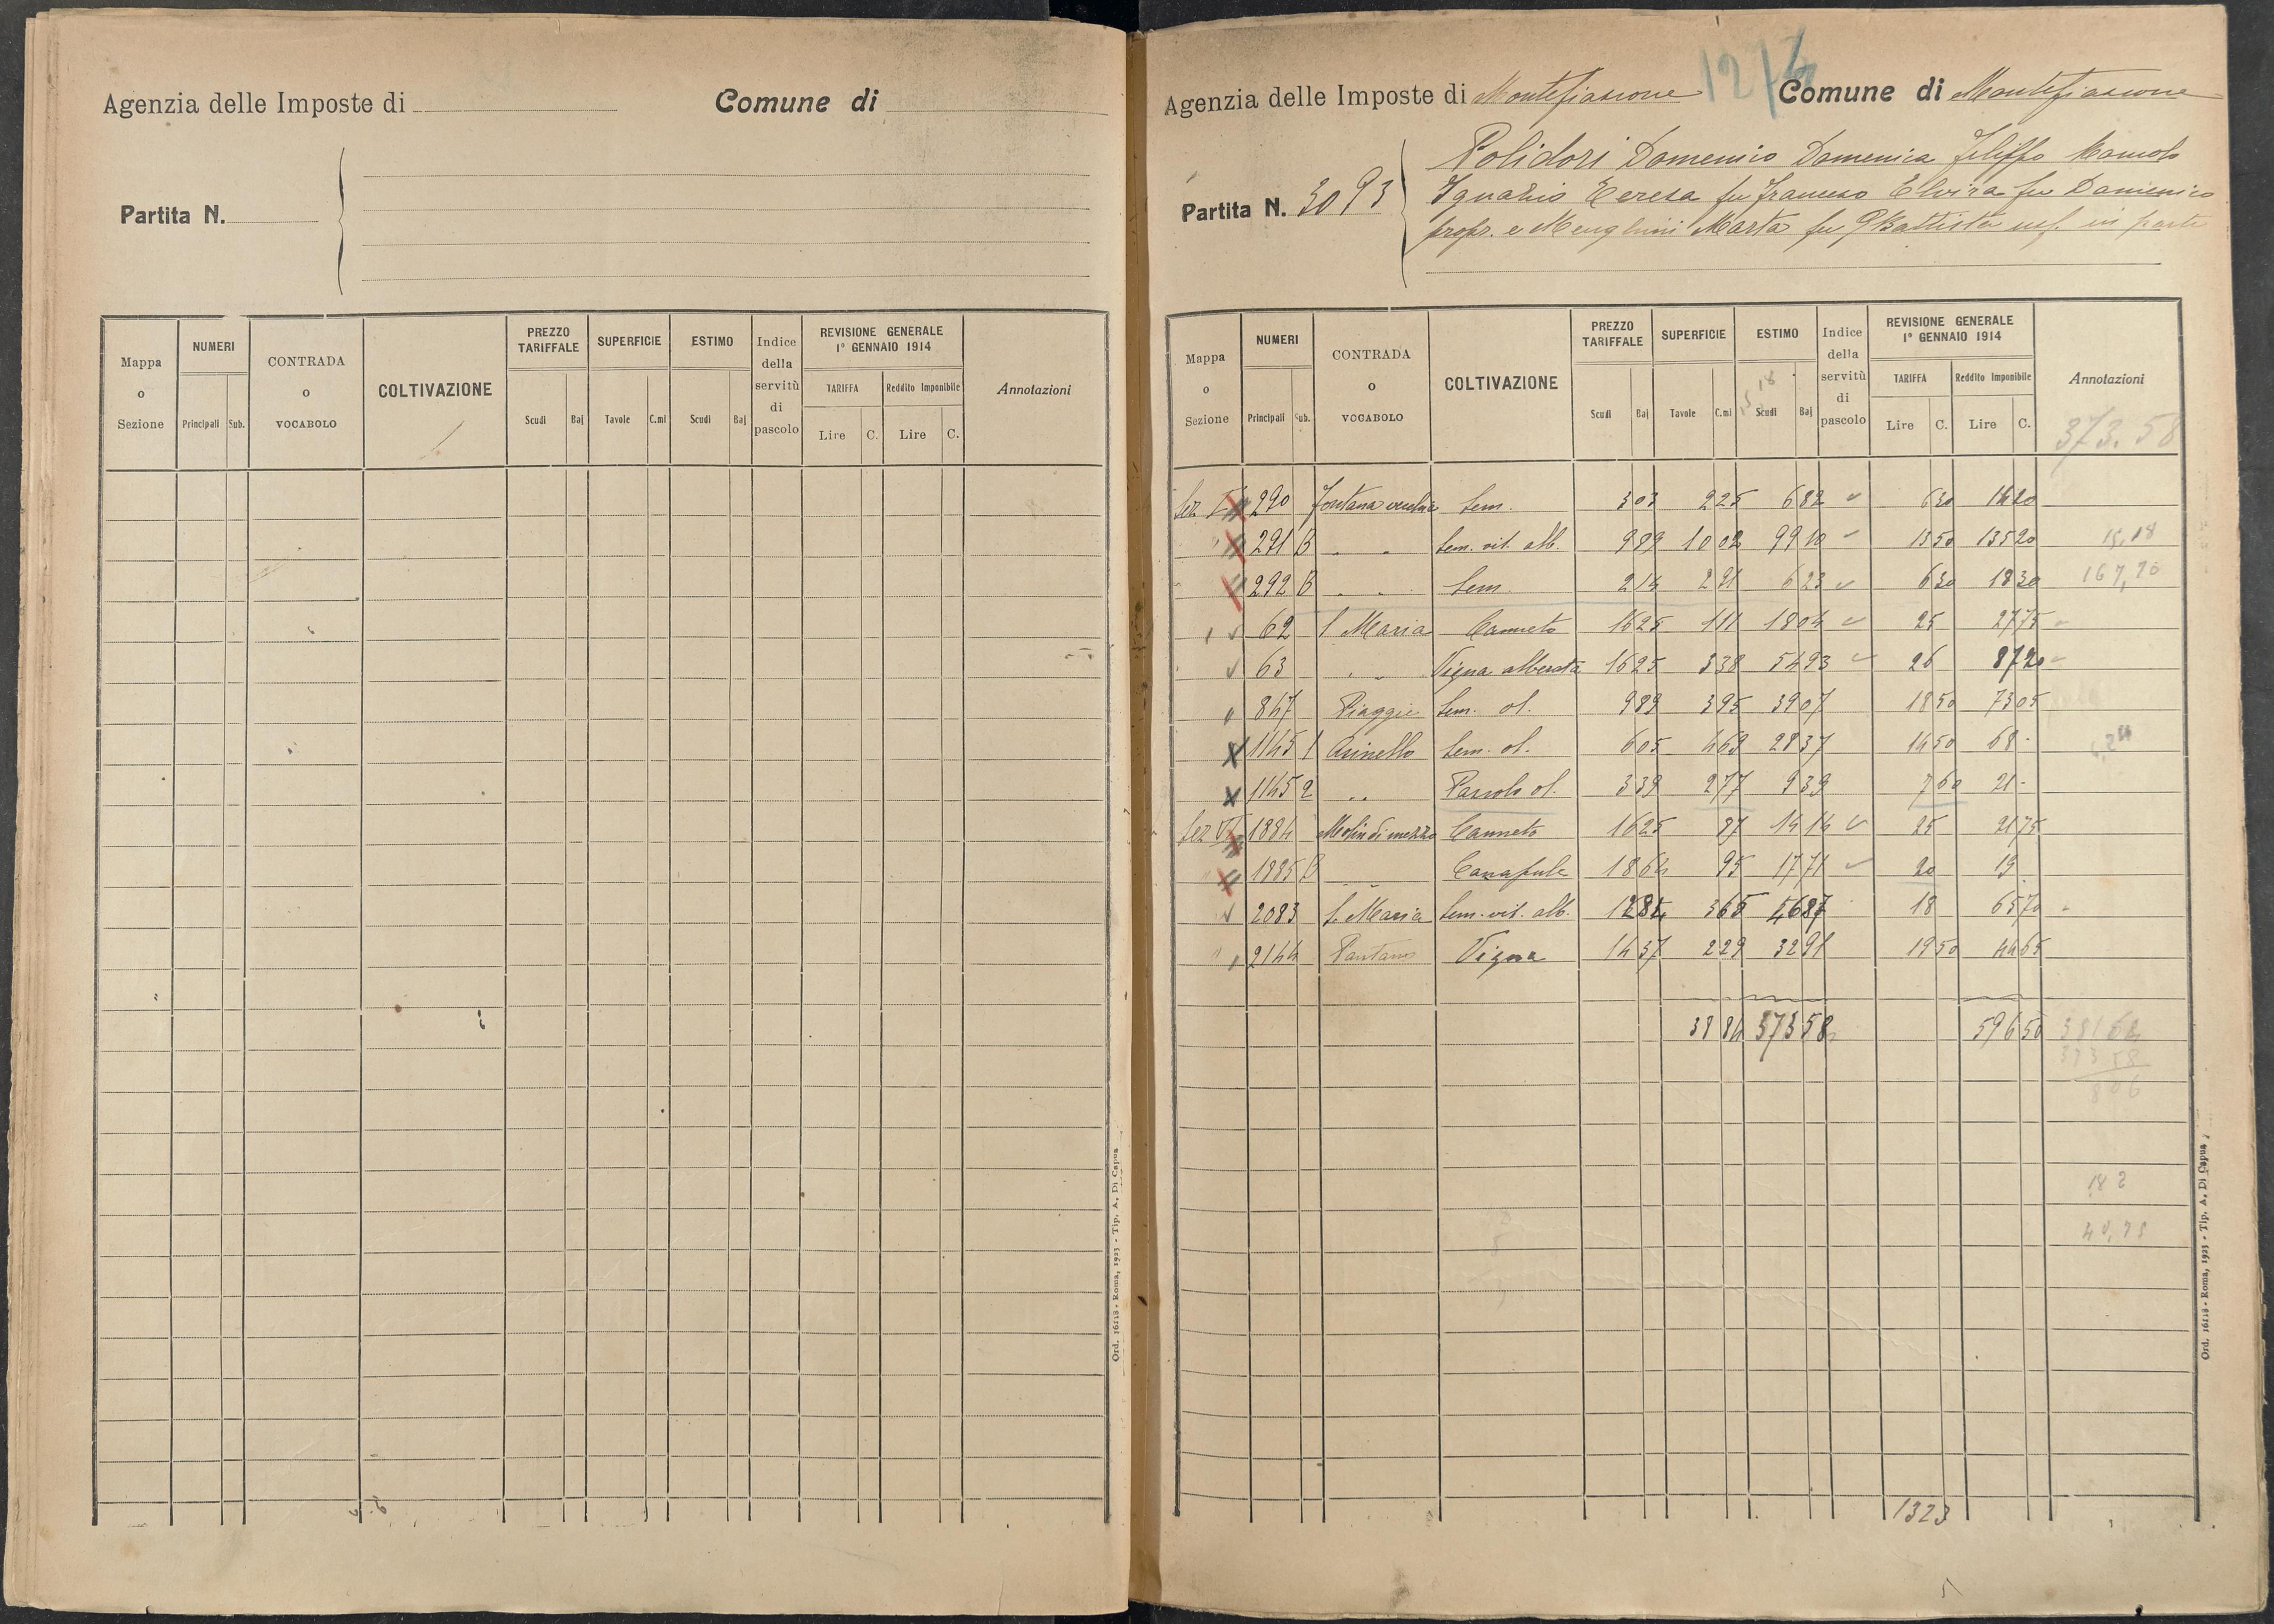 Agenzia delle Imposte di
Comune di
Partita N.
Mappa o Sezione
NUMERI
Principali Sub.
CONTRADA o VOCABOLO
COLTIVAZIONE
PREZZO TARIFFALE
Scudi Baj
SUPERFICIE
Tavole C.mi
ESTIMO
Scudi Baj
Indice della servitù di pascolo
REVISIONE GENERALE 1° GENNAIO 1914
TARIFFA
Lire C.
Reddito Imponibile
Lire C.
Annotazioni
Ord. 16118 - Roma, 1923 - Tip. A. Di Capua
Agenzia delle Imposte di Montefiascone
Comune di Montefiascone
Partita N. 3093
Polidori Domenico Domenica Filippo
Ignazio Teresa fu Francesco Elvira fu Domenico
propr. e Menghini Marta fu GBattista usf. in parte
Mappa o Sezione
NUMERI
Principali Sub.
CONTRADA o VOCABOLO
COLTIVAZIONE
PREZZO TARIFFALE
Scudi Baj
SUPERFICIE
Tavole C.mi
ESTIMO
Scudi Baj
Indice della servitù di pascolo
REVISIONE GENERALE 1° GENNAIO 1914
TARIFFA
Lire C.
Reddito Imponibile
Lire C.
Annotazioni
373.58
Sez. 290 Fontana vecchia Sem. 303 225 682 630 1420
291 B " " Sem. vit. alb. 989 1002 9910 1350 13520 15,18
292 B " " Sem 214 291 623 630 1830 167,70
62 S Maria Canneto 1625 111 1804 25 2775
63 " " Vigna alberata 1625 338 5493 26 8720
" 847 Piaggie Sem. ol. 989 395 3907 1850 7305
1145 1 Sem. ol. 605 469 2837 1450 68 -
1145 2 " Pascolo ol. 339 277 939 760 21 -
Sez VI 1884 Molin di mezzo Canneto 1625 87 1414 25 2175
1885 B Canapule 1864 95 1771 20 19
2083 S. Maria Sem. vit. alb. 1284 365 4687 18 6570
" 2144 Pantano Vigna 1437 229 3291 1950 4465
3884 37358 59650 38164
37358
806
182
1323
Ord. 16118 - Roma, 1923 - Tip. A. Di Capua